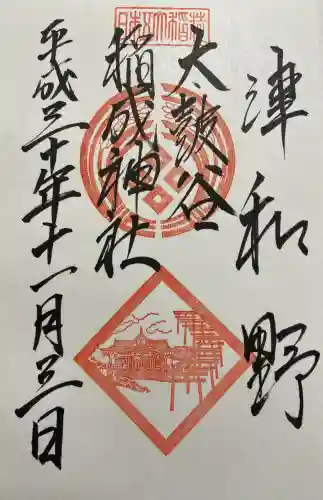 津和野
太皷谷
稲成神社
平成三十年十一月三日